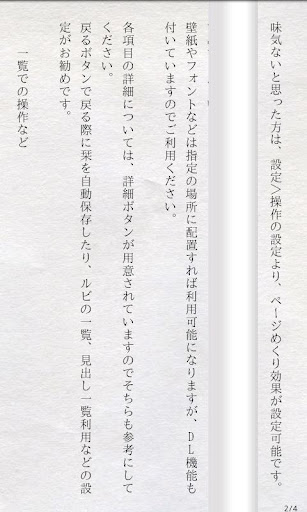 味気ないと思った方は、設定＞操作の設定より、ページめくり効果が設定可能です。
壁紙やフォントなどは指定の場所に配置すれば利用可能になりますが、ＤＬ機能も
付いていますのでご利用ください。
各項目の詳細については、詳細ボタンが用意されていますのでそちらも参考にして
ください。
戻るボタンで戻る際に栞を自動保存したり、ルビの一覧、見出し一覧利用などの設
定がお勧めです。
一覧での操作など
2/4